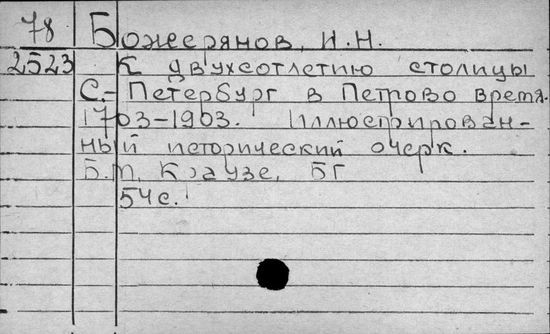 78 Божерянов, И.Н.
2523 К двухсотлетию столицы
С.-Петербург в Петрово время.
1703-1903. Иллюстрирован-
ный исторический очерк.
Б.м, Краузе, БГ
54с.